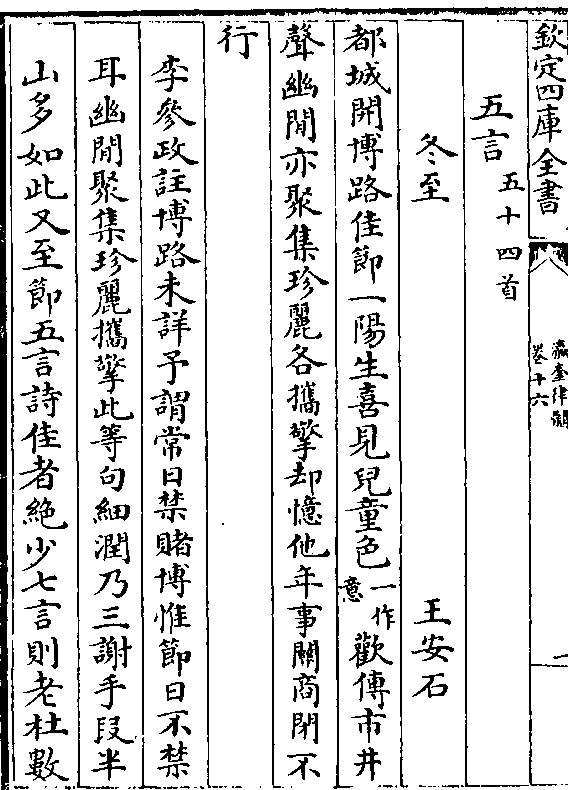 欽定四庫全書
瀛奎律髓
卷十六
一
五言五十四首
冬至
王安石
都城開博路佳節一陽生喜見兒童色一作意歡傳市井
聲幽閒亦聚集珍麗各攜擎却憶他年事關商閉不
行
李參政註博路未詳予謂常日禁賭博惟節日不禁
耳幽閒聚集珍麗攜擎此等句細潤乃三謝手段半
山多如此又至節五言詩佳者絶少七言則老杜數